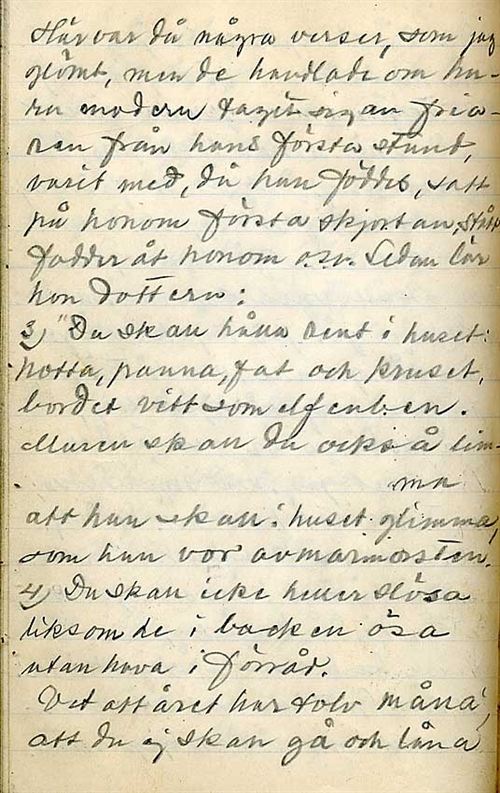 Här var då några verser, som jag
glömt, men de handlade om hu-
ru modern tagit sig an fria-
ren från hans första stund,
varit med, då han föddes, satt
på honom första skjortan, stått
fadder åt honom o.s.v. Sedan lär
hon dottern:
3) "Du skall hålla rent i huset:
potta, panna, fat och kruset,
bordet vitt som elfenben.
Muren skall du också lim-
ma
att han skall i huset glimma,
som han vor av marmorsten.
4) Du skall icke heller slösa
liksom de i backen ösa
utan hava i förråd.
Vet att året har tolv måna',
att du ej skall gå och låna